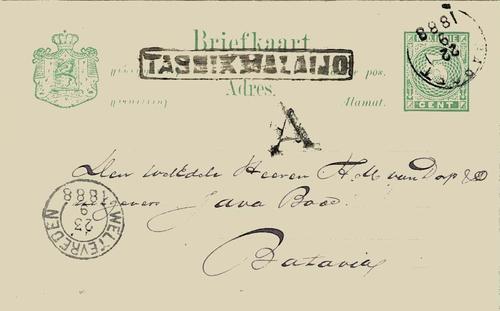 Briefkaart
TASSIKMALAIJO
pos.
Adres.
Alamat.
CENT
22 9 1888
A
Den weledele Heeren H. M. van Dorp & Co
Uitgevers Java Bode.
Batavia
WELTEVREDEN
23 9 1888